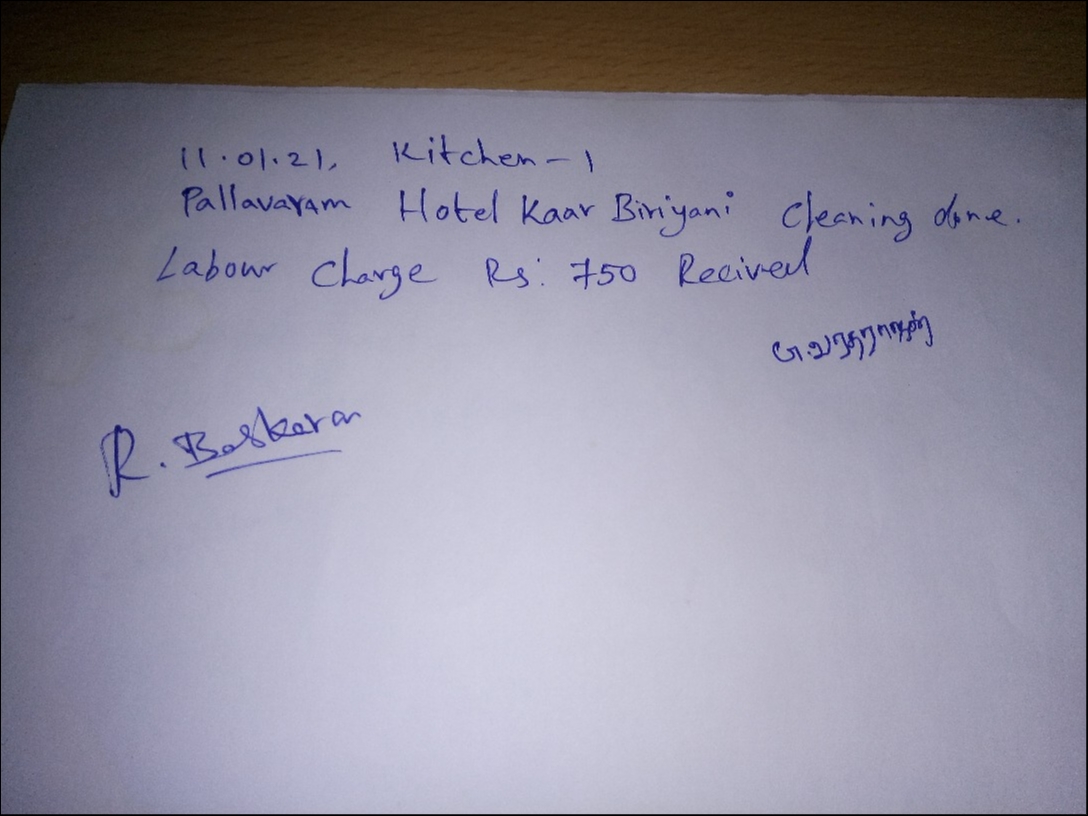 11.01.21, Kitchen - 1
Pallavaram Hotel Kaar Biriyani Cleaning done.
Labour Charge Rs: 750 Recived
வரதராஜன்
R. Baskaran